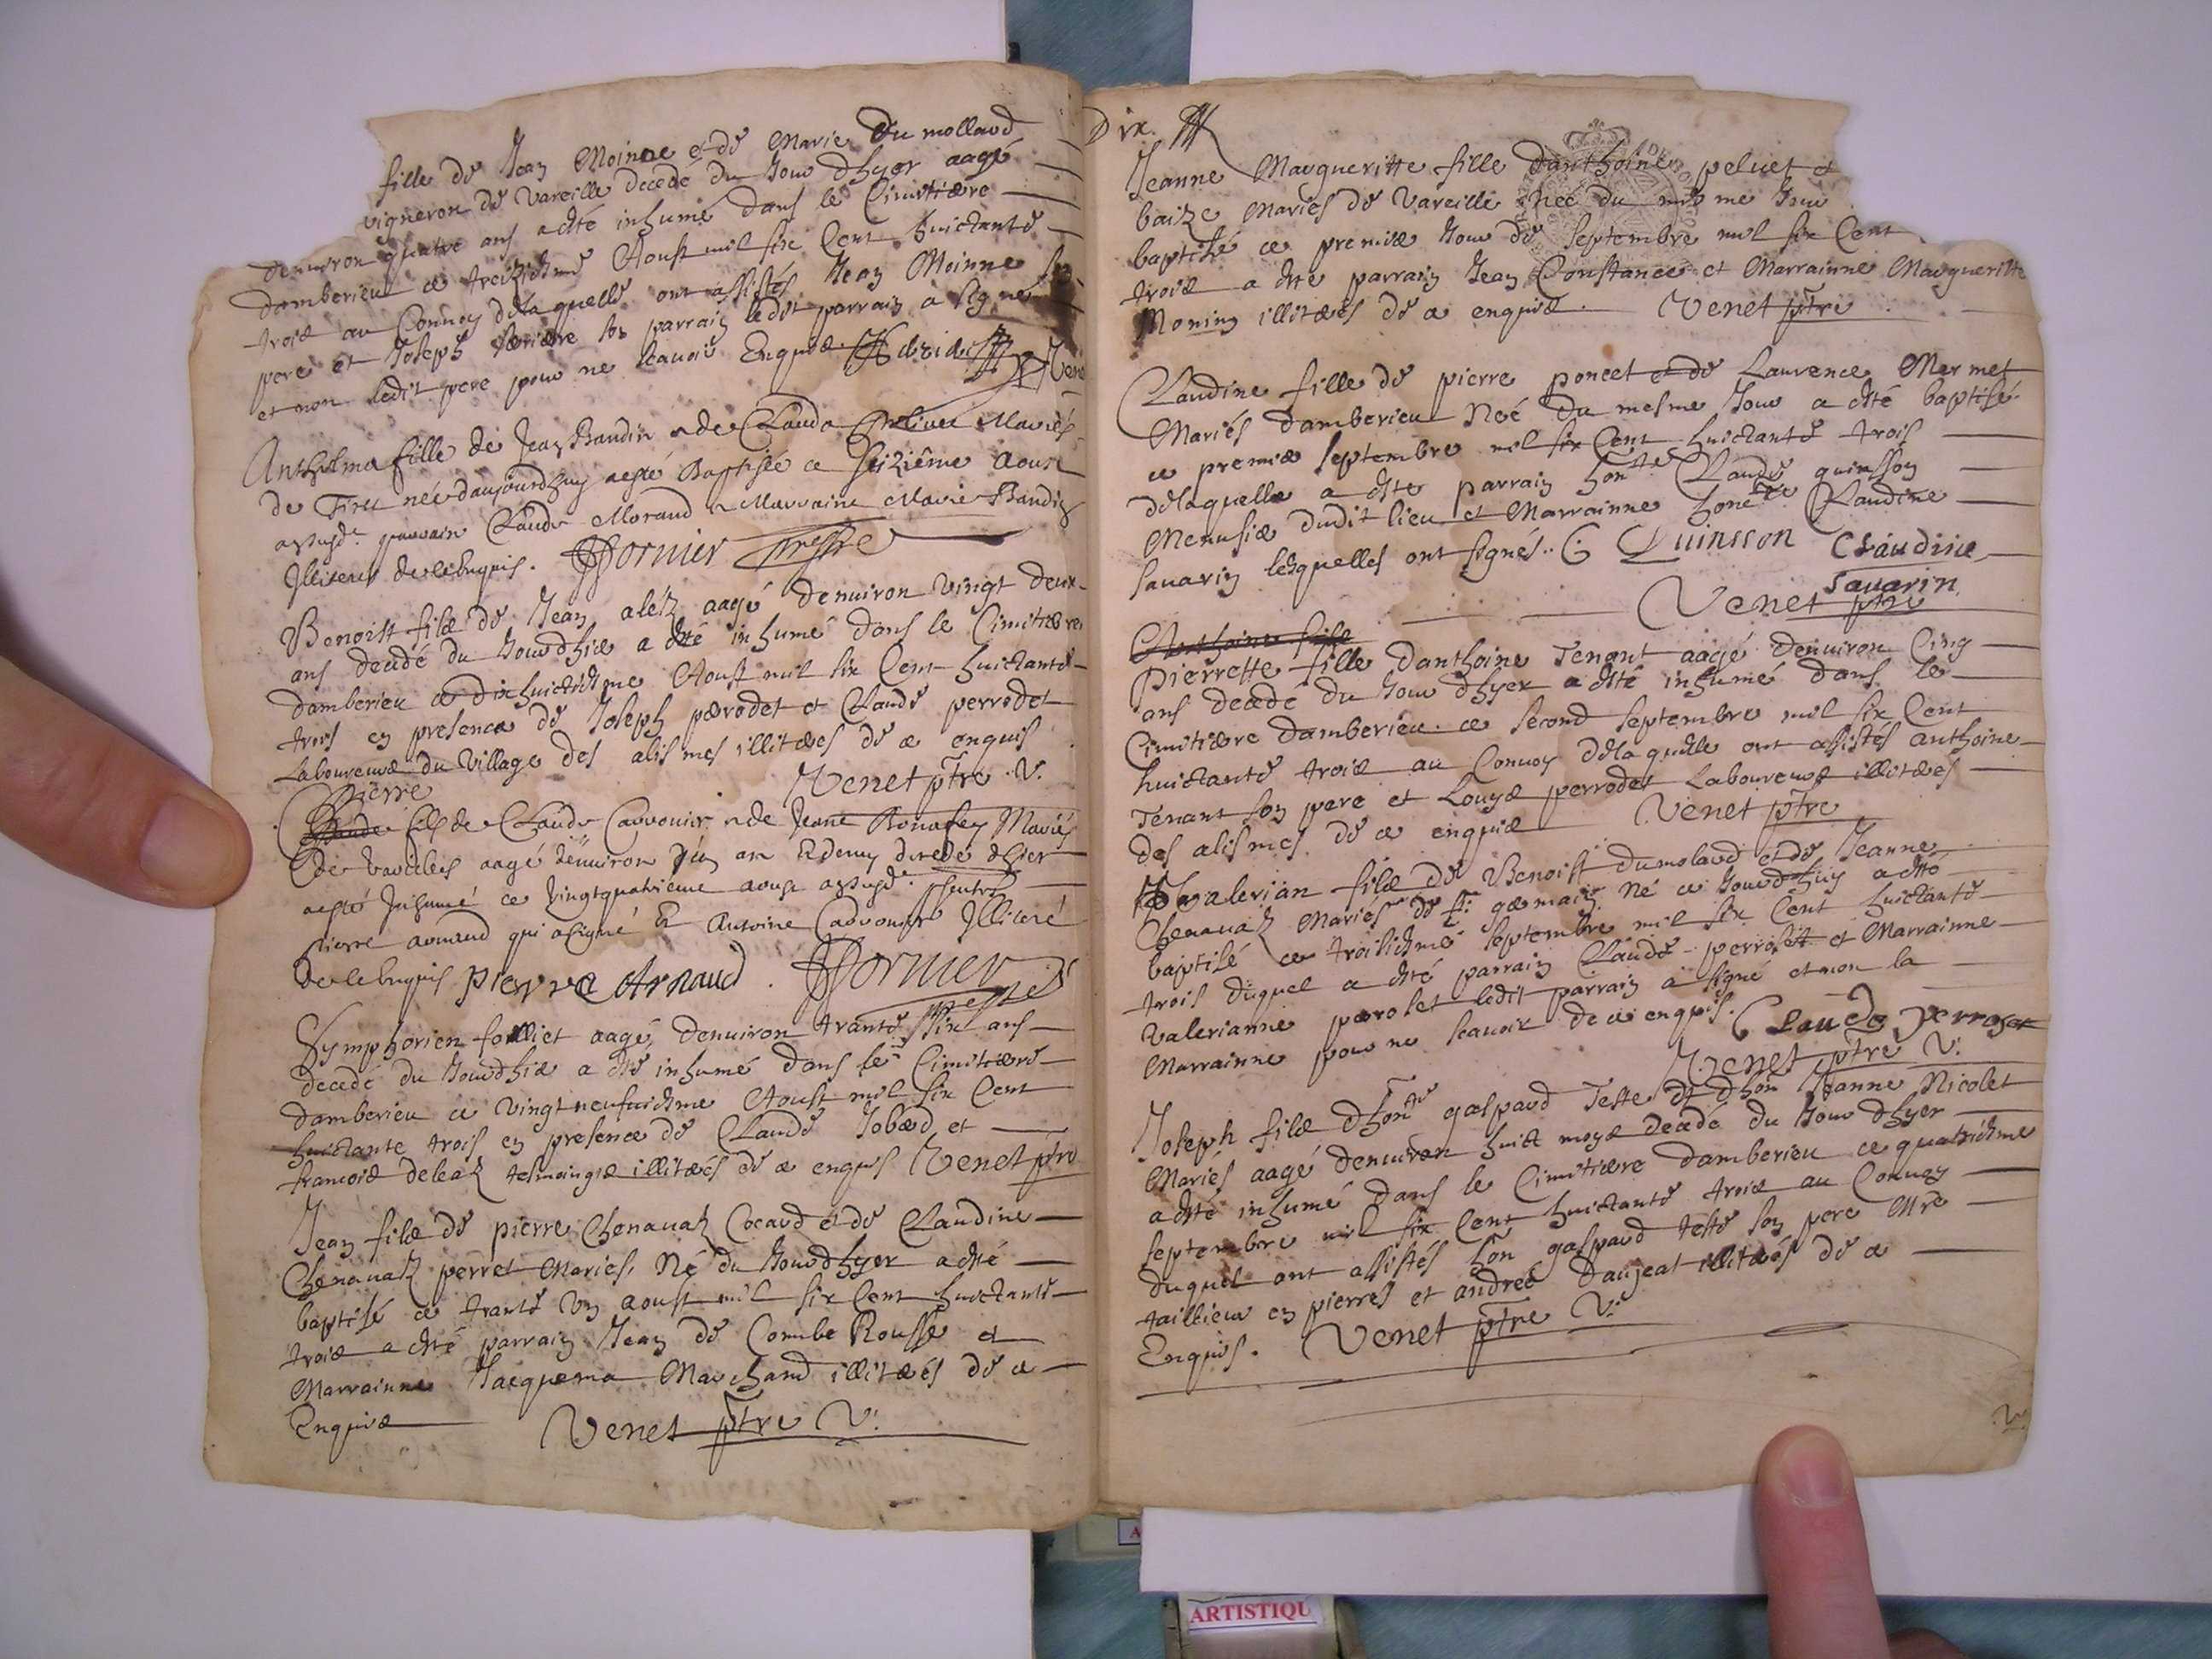 fille de Jean Moinne et de Marie Du mollard
vigneron de Vareille decedé du Jour dhyer aagé
denuiron quatre ans a esté inhumé dans le Cimitiere
damberieu ce treiziesme Aoust mil six Cent huictante
trois au Conuoy de laquelle ont assistés Jean Moinne son
pere et Joseph son parrain ledit parrain a signé
et non ledit pere pour ne scauoir Enquis
Anthelma fille de Jean Baudin & de Clauda Mariés
de Tiret née daujourdhuy aesté Baptisée ce seizième aoust
parrain Claude Morand & Marraine Marie Baudin
Illiterés de ce Enquis. Fornier prestre
Benoist filz de Jean alez aagé denuiron vingt deux
ans decedé du Jourdhier a esté inhumé dans le Cimitiere
damberieu ce dixhuictiesme Aoust mil six Cent huictante
trois en presence de Joseph perrodet et Claude perrodet
Laboureurs du Village des alismes illiteres de ce enquis
Venet ptre V.
Pierre
Claude fils de Claude Carronier & de Jeane Bonafey Mariés
de vareilles aagé denuiron un an & demy decedé dhier
aesté Inhumé ce vingtquatrieme aoust
Pierre arnaud qui asigné & Antoine Illiteré
de ce Enquis pierre Arnaud . Fornier
prestre
Symphorien folliet aagé denuiron trante six ans
decedé du Jourdhier a esté inhumé dans le Cimitiere
damberieu ce vingt neufuiesme Aoust mil six Cent
huictante trois en presence de Claude Jobard et
francois deleaz tesmoings illiterés de ce enquis Venet ptre
Jean filz de pierre Chenauaz Cocard et de Claudine
Chenauaz perret Mariés, Né du Jourdhyer a esté
baptisé ce trante un aoust mil six Cent huictante
trois a esté parrain Jean de Combe Rousse et
Marrainne Jacquema Marchand illiterés de ce
Enquis Venet ptre V.
Dix.
Jeanne Margueritte fille danthoine peluet et
baize Mariés de Vareille Née du mesme Jour
baptisé ce premier Jour de septembre mil six Cent
trois a esté parrain Jean Constance et Marrainne Margueritte
Monin illiterés de ce enquis. Venet ptre
Claudine fille de pierre poncet et de Laurence Mermet
Mariés damberieu Née du mesme Jour a esté baptisé
ce premier septembre mil six Cent huictante trois
de laquelle a esté parrain honte Claude quinsson
Menusier dudit lieu et Marrainne honete Claudine
sauarin lesquelles ont signés.. C Quinsson Claudine
sauarin
Venet ptre
Anthoine fille
Pierrette fille danthoine Tenant aagé denuiron Cinq
ans decedé du Jour dhyer a esté inhumé dans le
Cimitiere damberieu. ce second septembre mil six Cent
huictante trois au Conuoy de laquelle ont assistés anthoine
Tenant son pere et Louys perrodet Laboureurs illiteres
des alismes de ce enquis Venet ptre
Valerian filz de Benoist dumolard et de Jeanne
Chenauaz Mariés de St germain Né ce Jourdhuy a esté
baptisé ce troisiesme septembre mil six Cent huictante
trois duquel a esté parrain Claude perroset et Marrainne
Valerianne perroset ledit parrain a signé et non la
Marrainne pour ne scauoir de ce enquis. Claude perroset
Venet ptre V.
Joseph filz dhonte gaspard Teste et dhon Jeanne Nicolet
Mariés aagé denuiron huict moys decedé du Jour dhyer
a esté inhumé dans le Cimitiere damberieu ce quatriesme
septembre mil six Cent huictante trois au Conuoy
duquel ont assistés hon gaspard teste son pere Mre
taillieur en pierres et andré daujeat illiterés de ce
Enquis. Venet ptre V.
ARTISTIQU